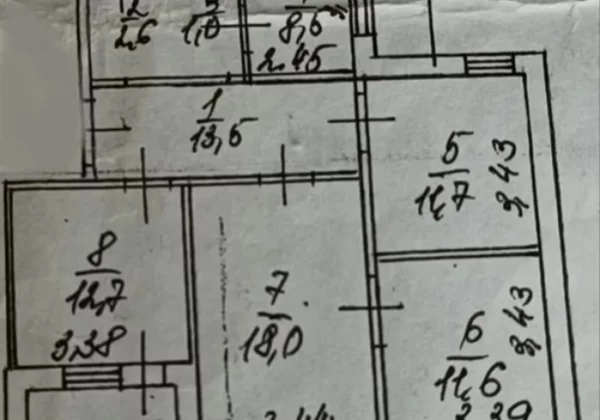 2,6
1,0
8,6
2.45
1
13,5
5
11,7
3,43
8
12,7
3.38
7
18,0
6
11,6
3,43